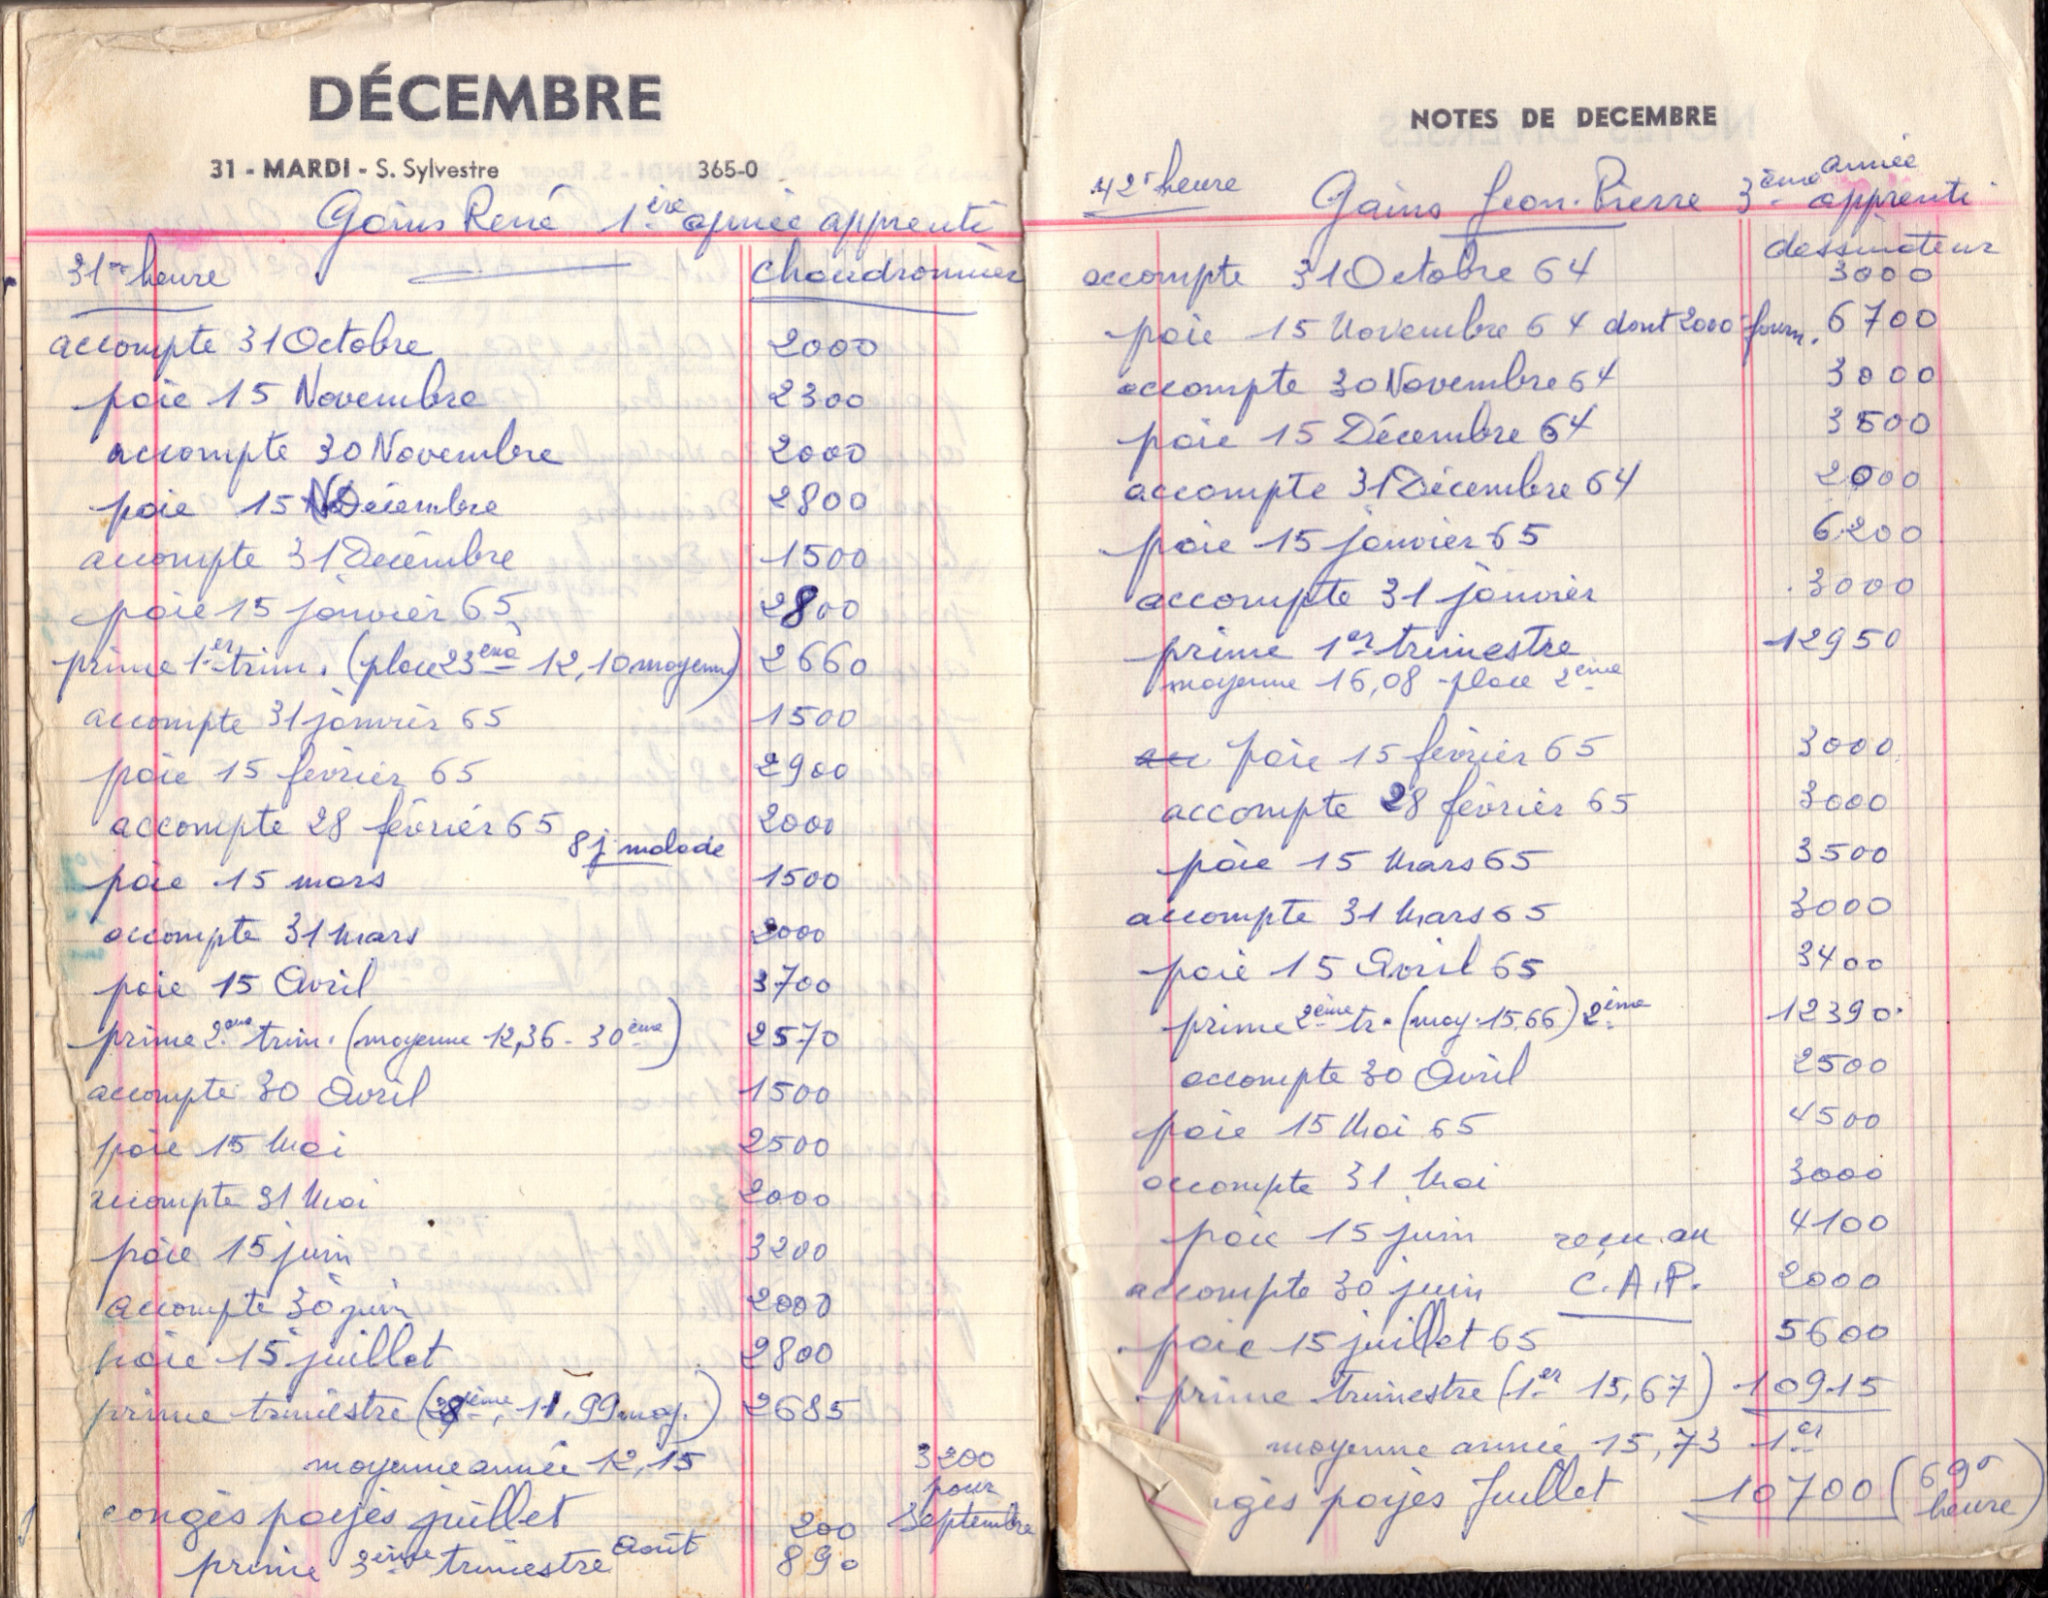 DÉCEMBRE
31 - MARDI - S. Sylvestre 365-0
Gains René 1ère année apprenti
31 heure chaudronnier
accompte 31 Octobre 2000
paie 15 Novembre 2300
accompte 30 Novembre 2000
paie 15 Décembre 2800
accompte 31 Décembre 1500
paie 15 janvier 65 2800
prime 1er trim. (place 23ème 12,10 moyenne) 2660
accompte 31 janvier 65 1500
paie 15 février 65 2900
accompte 28 février 65 2000
8 j. malade
paie 15 mars 1500
accompte 31 Mars 2000
paie 15 Avril 3700
prime 2ème trim. (moyenne 12,36 - 30ème) 2570
accompte 30 Avril 1500
paie 15 Mai 2500
accompte 31 Mai 2000
paie 15 juin 3200
accompte 30 juin 2000
paie 15 juillet 2800
prime trimestre (ème, 11,99 moy.) 2685
moyenne année 12,15
3200 pour Septembre
congès payés juillet 200
prime 3ème trimestre Août 890
NOTES DE DECEMBRE
42 heure Gains Jean-Pierre 3ème année apprenti
dessinateur
accompte 31 Octobre 64 3000
paie 15 Novembre 64 dont 2000 fourn. 6700
accompte 30 Novembre 64 3000
paie 15 Décembre 64 3500
accompte 31 Décembre 64 2000
paie 15 janvier 65 6200
accompte 31 janvier 3000
prime 1er trimestre 12950
moyenne 16,08 - place 2ème
paie 15 février 65 3000
accompte 28 février 65 3000
paie 15 Mars 65 3500
accompte 31 Mars 65 3000
paie 15 Avril 65 3400
prime 2ème tr. (moy. 15,66) 2ème 12390
accompte 30 Avril 2500
paie 15 Mai 65 4500
accompte 31 Mai 3000
paie 15 juin reçu au 4100
accompte 30 juin C.A.P. 2000
paie 15 juillet 65 5600
prime trimestre (1er 15,67) 10915
moyenne année 15,73 1er
gès payés Juillet 10700 (69 heure)